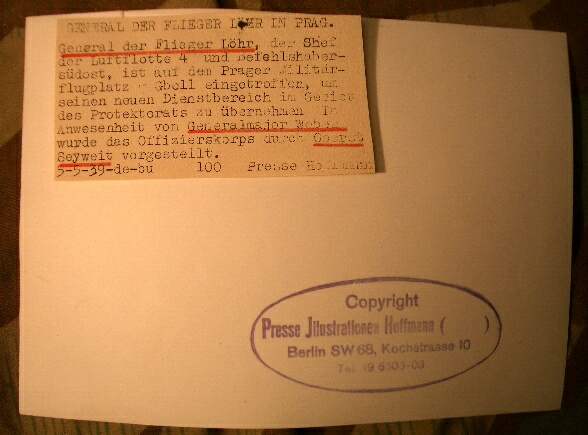 GENERAL DER FLIEGER LÖHR IN PRAG.
General der Flieger Löhr, der Shef
der Luftflotte 4 und Befehlshaber-
südost, ist auf dem Prager Militär-
flugplatz Gbell eingetroffen, um
seinen neuen Dienstbereich im Gebiet
des Protektorats zu übernehmen In
Anwesenheit von Generalmajor
wurde das Offizierskorps durch Oberst
Seyweit vorgestellt.
5-5-39-de-bu 100 Presse Hoffmann
Copyright
Presse Jllustrationen Hoffmann ( )
Berlin SW 68, Kochstrasse 10
Tel. 19